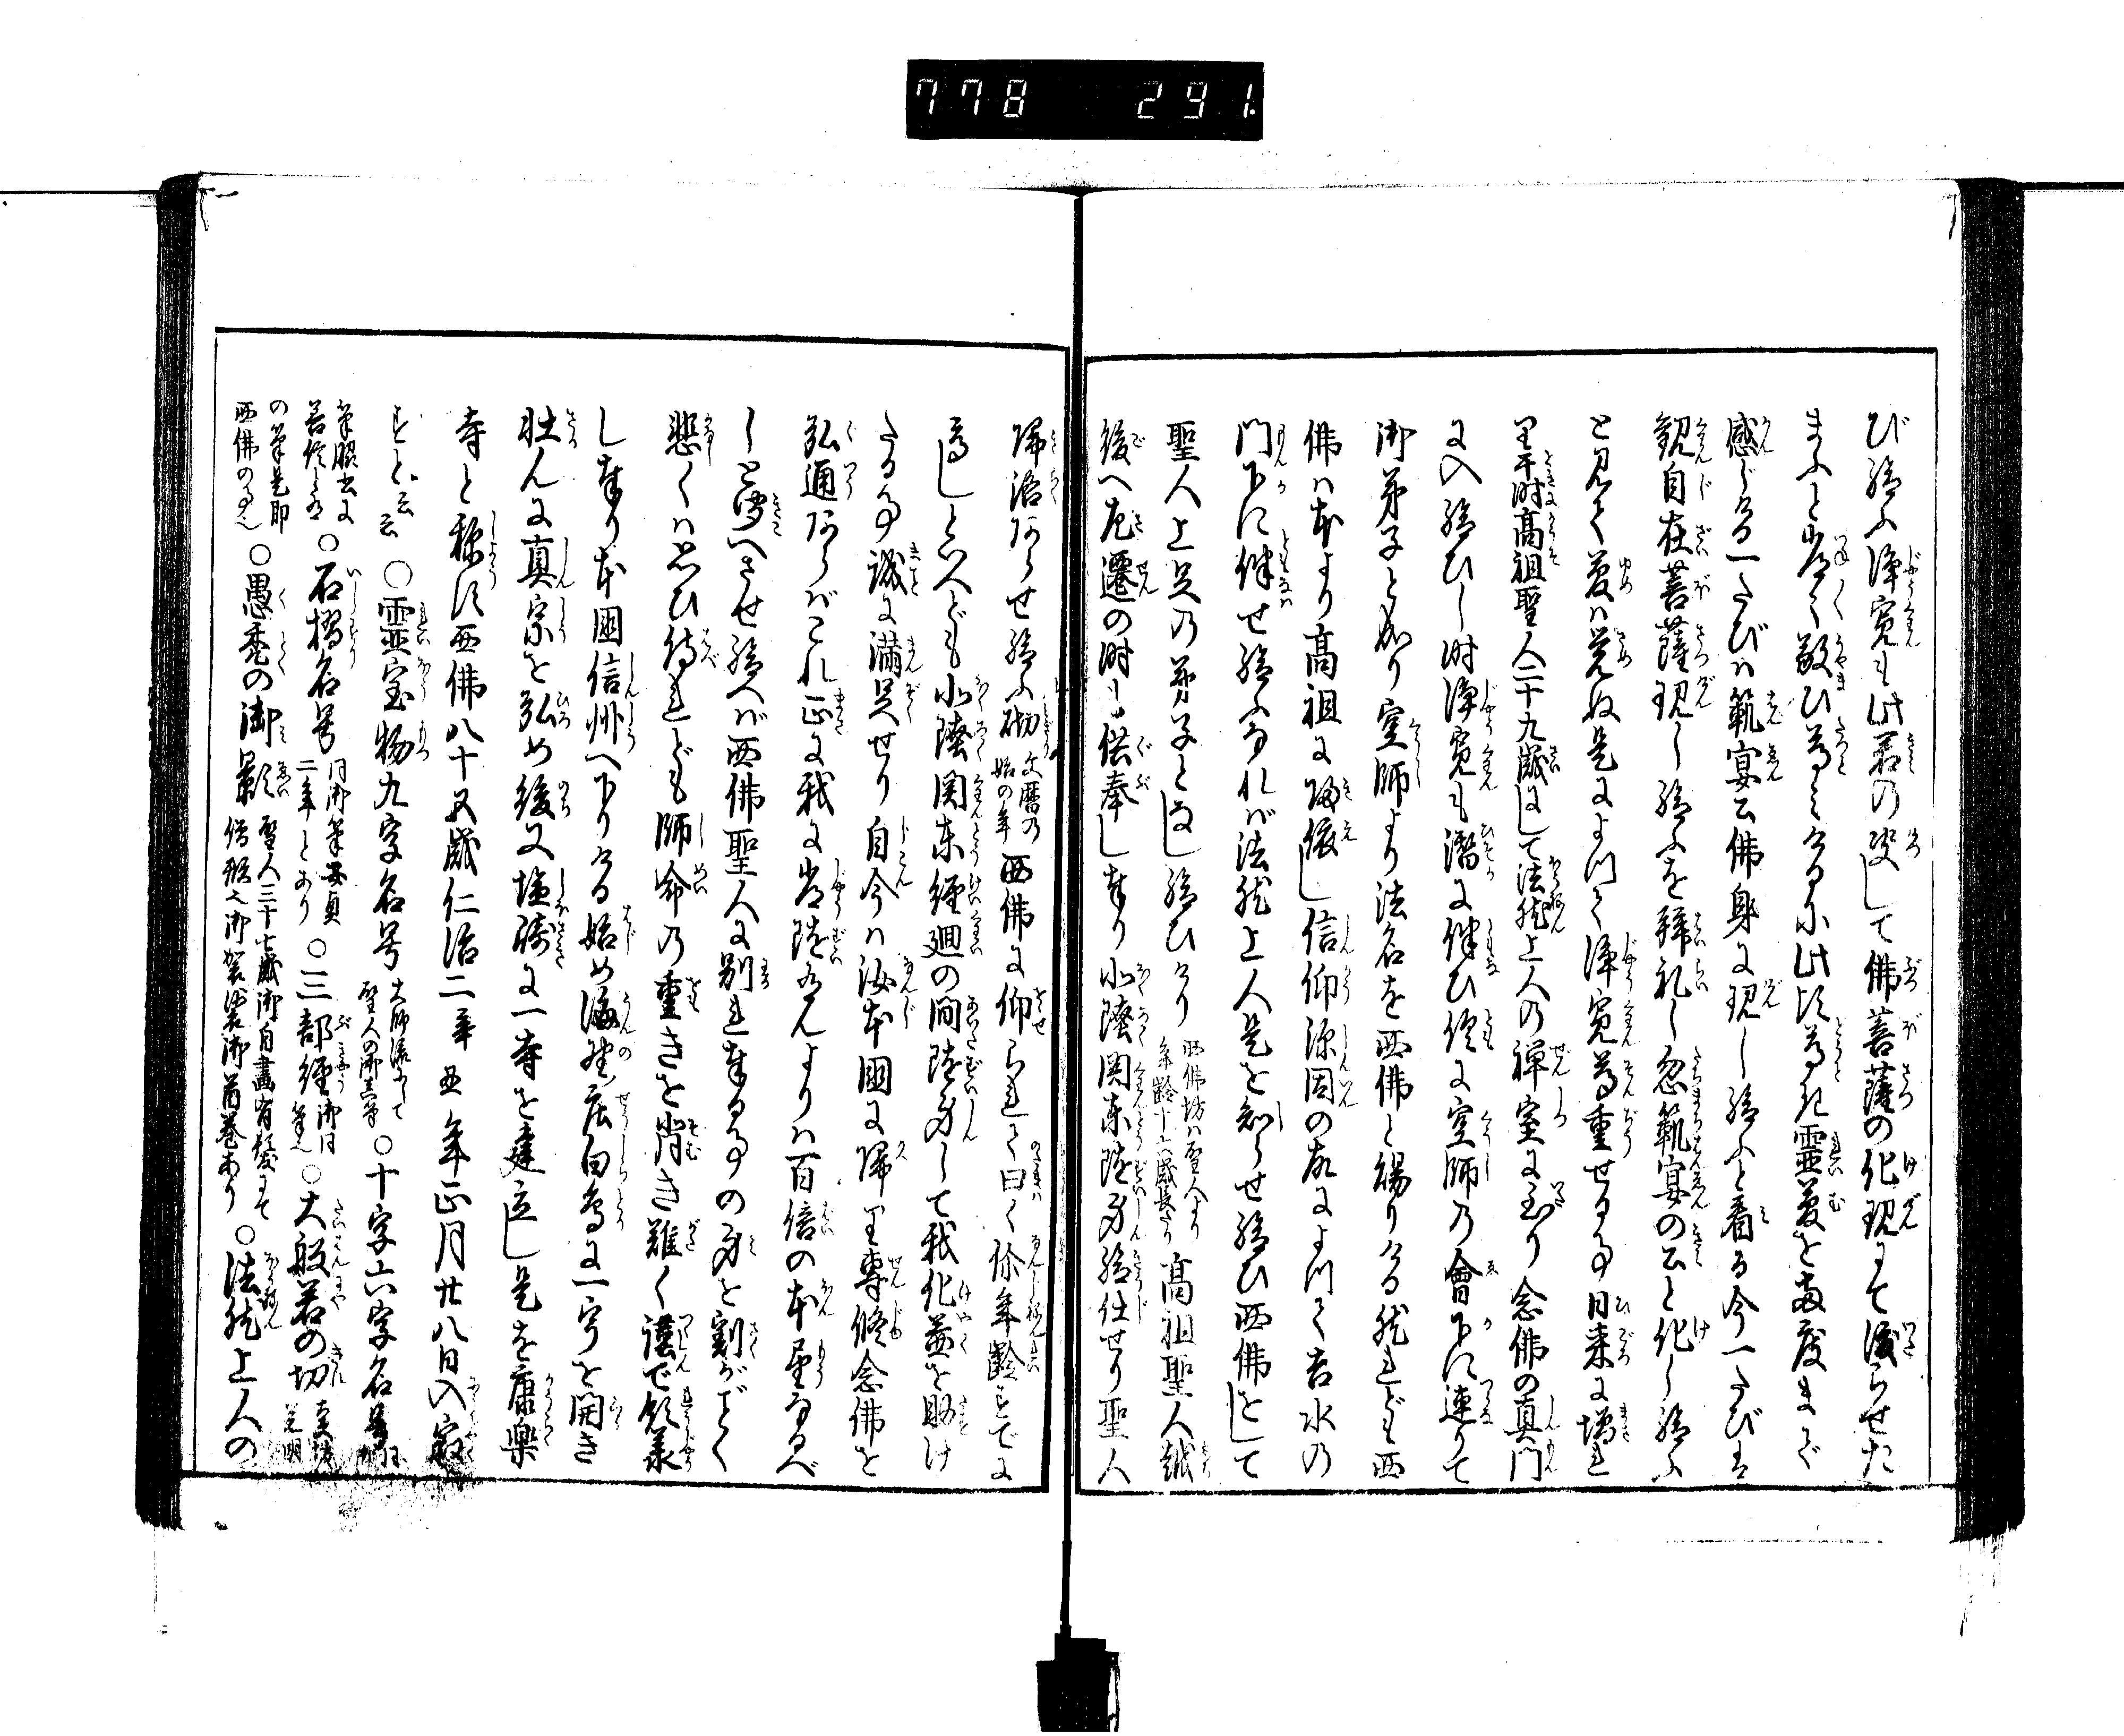 778 291
び給ふ浄寛も此君の決して佛菩薩の化現にて渡らせた
まふと常々敬ひ尊みけるに此頃尊き霊夢を両度まで
感じける一たびハ範宴公佛身に現し給ふと看る今一たびは
観自在菩薩現し給ふを拝礼し忽範宴の公と化し給ふ
と見て夢ハ覚ぬ是によつて浄寛尊重せる事日来に増れ
り于時高祖聖人二十九歳にして法然上人の禅室に到り念佛の真門
に入給ひし時浄寛も潜に伴ひ倶に空師の會下に連りて
御弟子と成り空師より法名を西佛と賜りける然れども西
佛ハ本より高祖に帰依し信仰深因の故によつて吉水の
門下に伴せ給ふなれば法然上人是を知らせ給ひ西佛をして
聖人上足の弟子となし給ひけり 西佛坊ハ聖人より年齢十六歳長たり 高祖聖人越
後へ左遷の時も供奉し奉り北陸関東随身給仕せり聖人
帰洛あらせ給ふ砌 文暦の始の年 西佛に仰られて曰く你年齢すでに
高しといへども北陸関東経廻の間随身して我化益を助け
たる事誠に満足せり自今ハ汝本國に帰り専修念佛を
弘通あらばこれ正に我に常随为んよりハ百倍の本望なるべ
しと聞へさせ給へば西佛聖人に別れ奉る事の身を割がごとく
悲くハ思ひ侍れども師命の重きを背き難く謹で領掌
し奉り本國信州へ下りける始め海野庄白鳥に一宇を開き
壮んに真宗を弘め後又塩崎に一寺を建立し是を康樂
寺と称す西佛八十五歳仁治二年丑年正月廿八日入寂
すと云云 ○霊宝物九字名号 大師流にて聖人の御真筆 ○十字六字名号 同
筆 ○石摺名号 同御筆安貞二年とあり ○三部経 御同筆也 ○大般若の切
の筆是即西佛の事也 ○愚禿の御影 聖人三十七歳御自画有髪にて僧形之御袈裟御首巻あり ○法然上人の